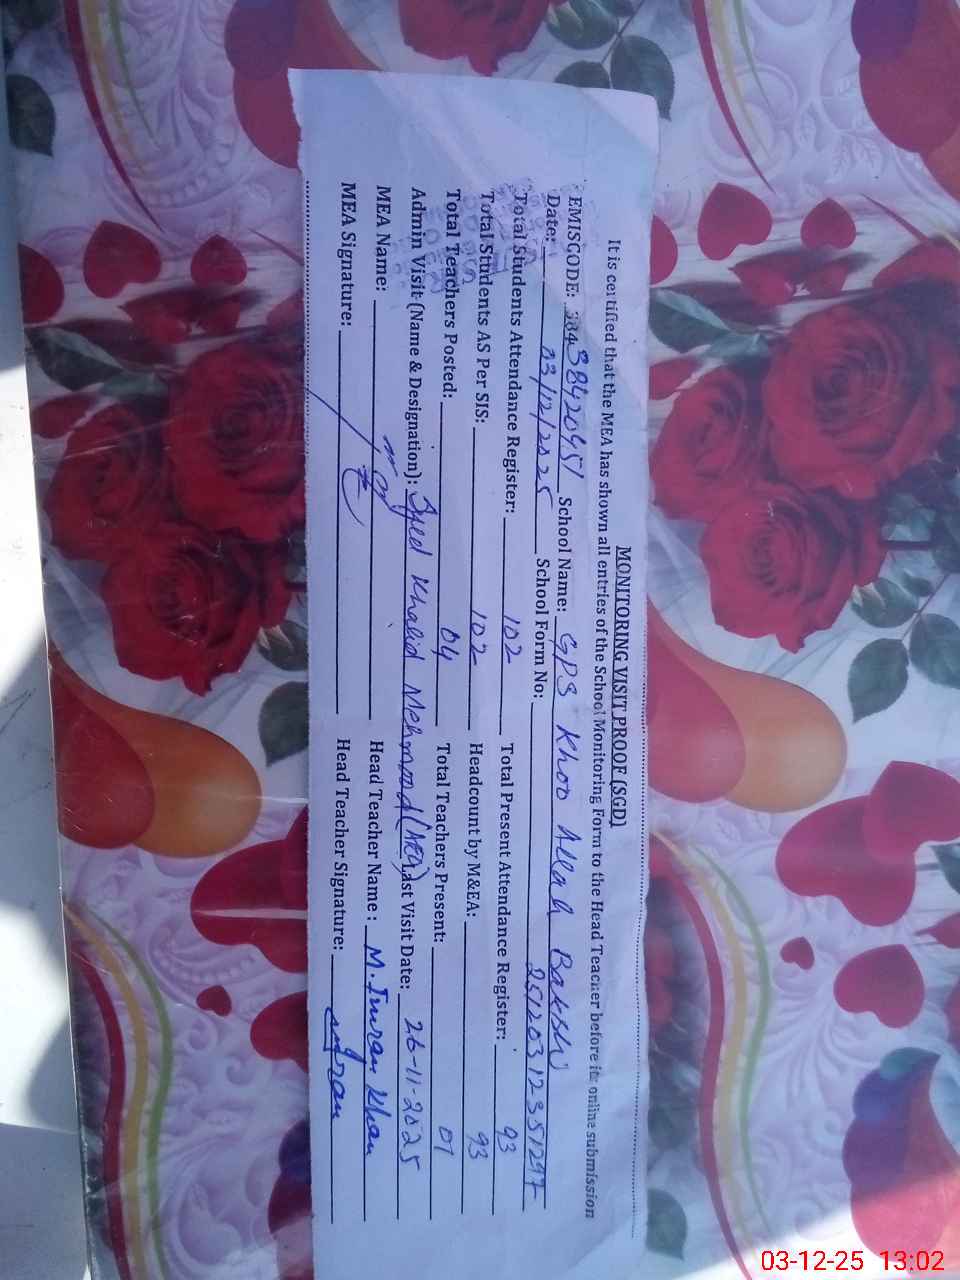 MONITORING VISIT PROOF (SGD)
It is certified that the MEA has shown all entries of the School Monitoring Form to the Head Teacher before its online submission
EMISCODE: 38420451 School Name: GPS Khoo Allah Bakhsh
Date: 03/12/2025 School Form No: 25120312351297
Total Students Attendance Register: 102 Total Present Attendance Register: 93
Total Students AS Per SIS: 102 Headcount by M&EA: 93
Total Teachers Posted: 04 Total Teachers Present:
Admin Visit (Name & Designation): Syed Khalid Mehmood (AEO) Last Visit Date: 26-11-2025
MEA Name: Head Teacher Name : M. Imran Khan
MEA Signature: Head Teacher Signature: Imran
03-12-25 13:02